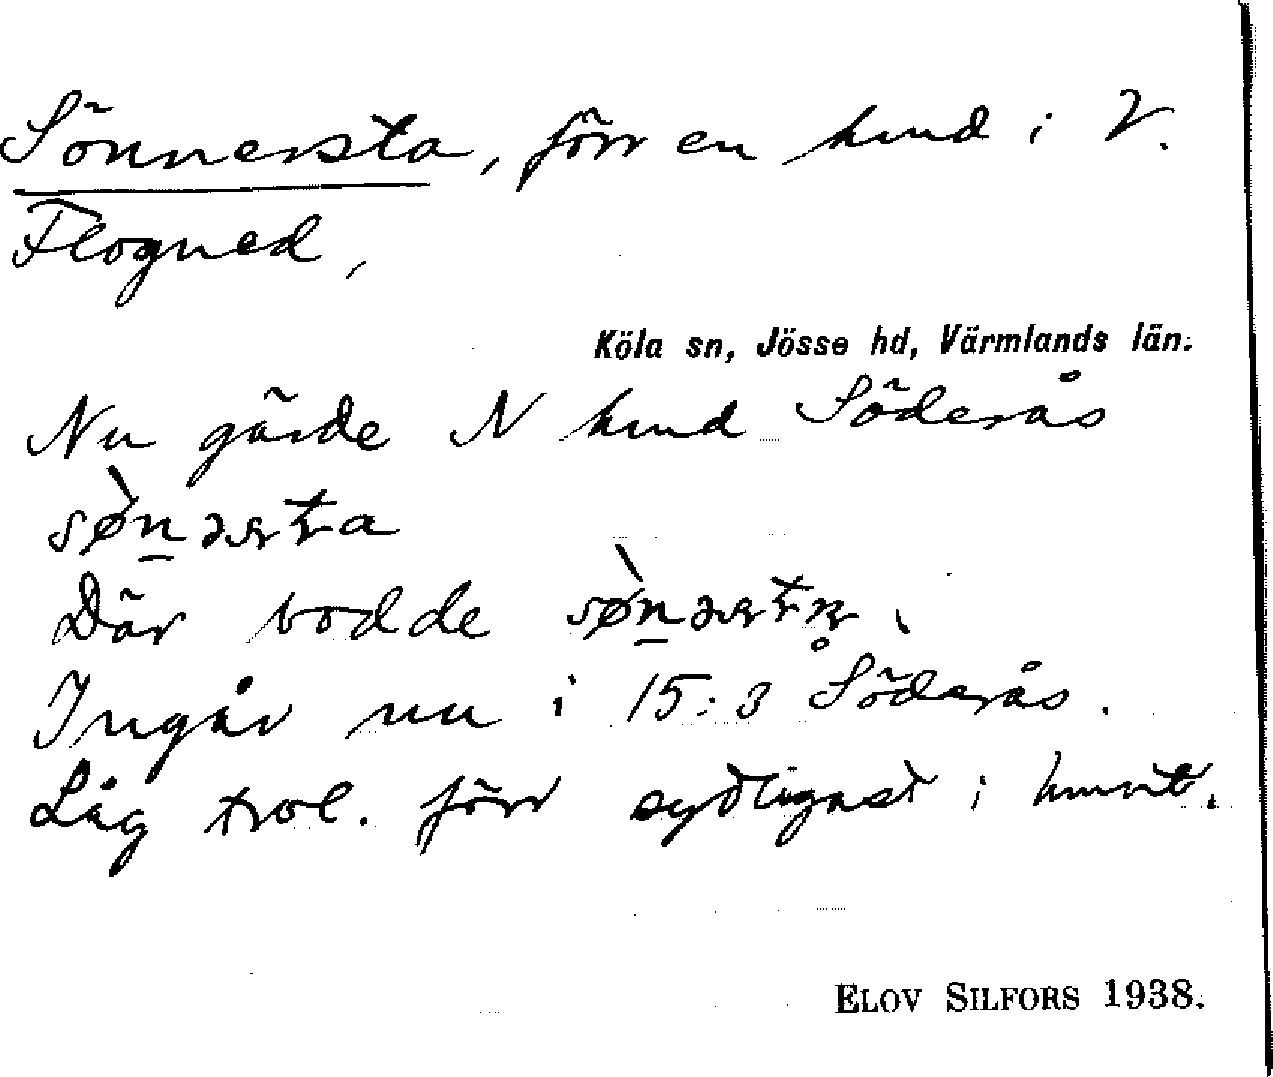 Sönnersta, förr en lund i V.
Flogned,
Köla sn, Jösse hd, Värmlands län.
Nu gärde N lund Söderås
Där bodde
Ingår nu i 15:3 Söderås.
Låg trol. förr sydligast i
ELOV SILFORS 1938.